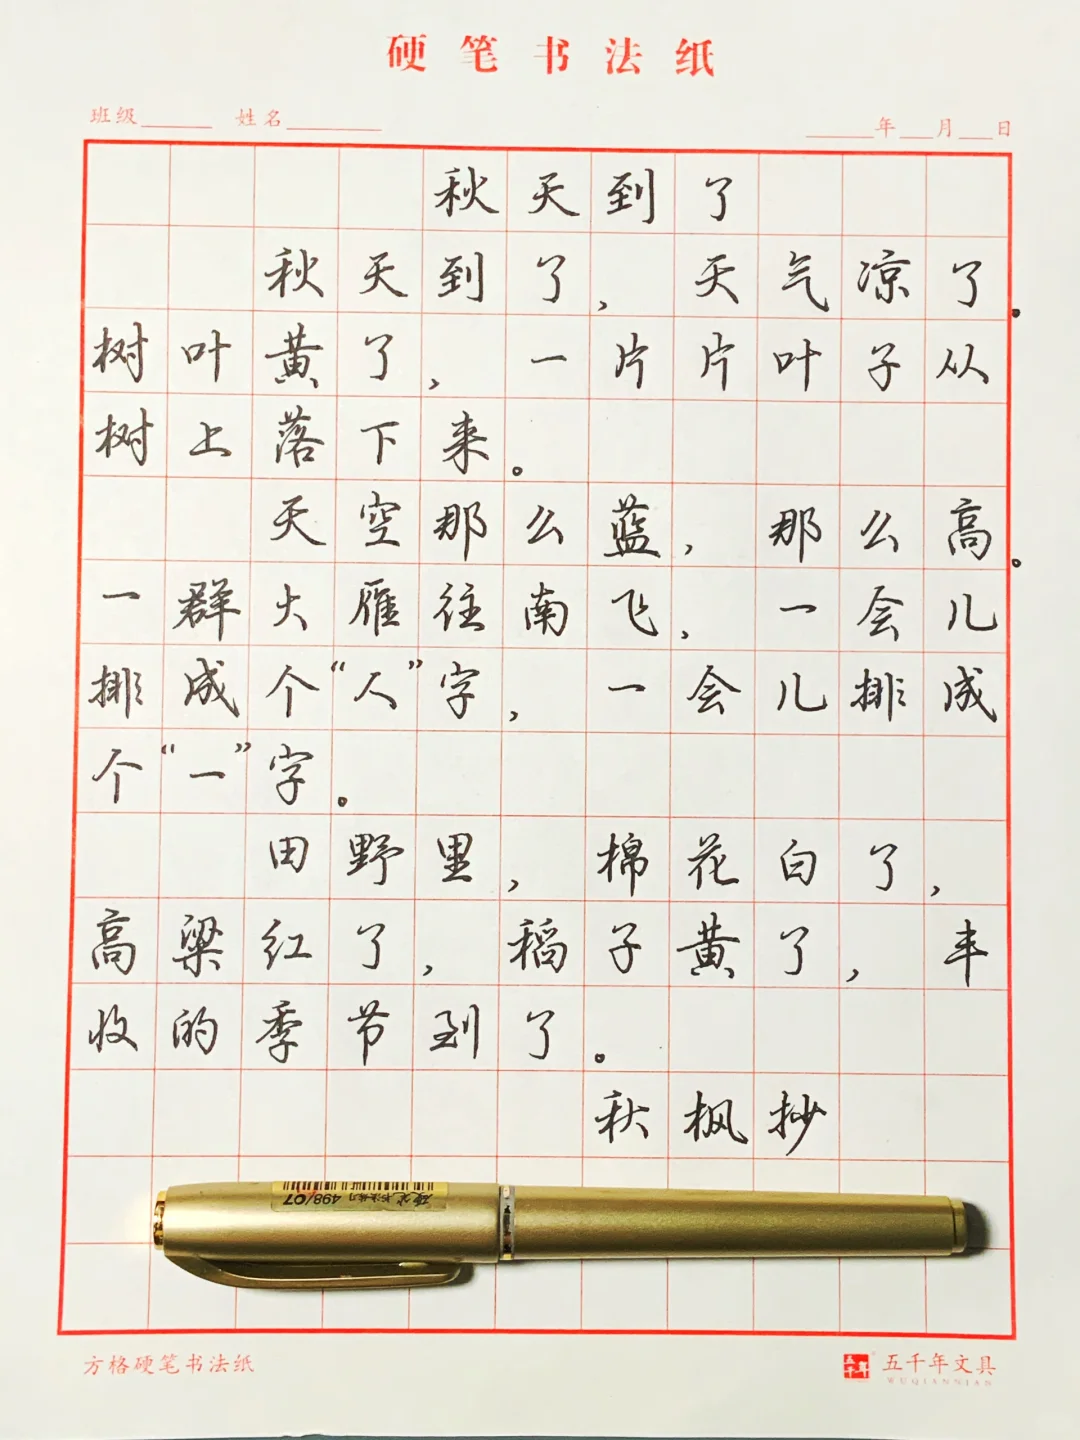 硬笔书法纸
班级 姓名 年 月 日
秋天到了
秋天到了，天气凉了。
树叶黄了，一片片叶子从
树上落下来。
天空那么蓝，那么高。
一群大雁往南飞，一会儿
排成个“人”字，一会儿排成
个“一”字。
田野里，棉花白了，
高梁红了，稻子黄了，丰
收的季节到了。
秋枫抄
498/07
方格硬笔书法纸
五千年文具
WUQIANNIAN